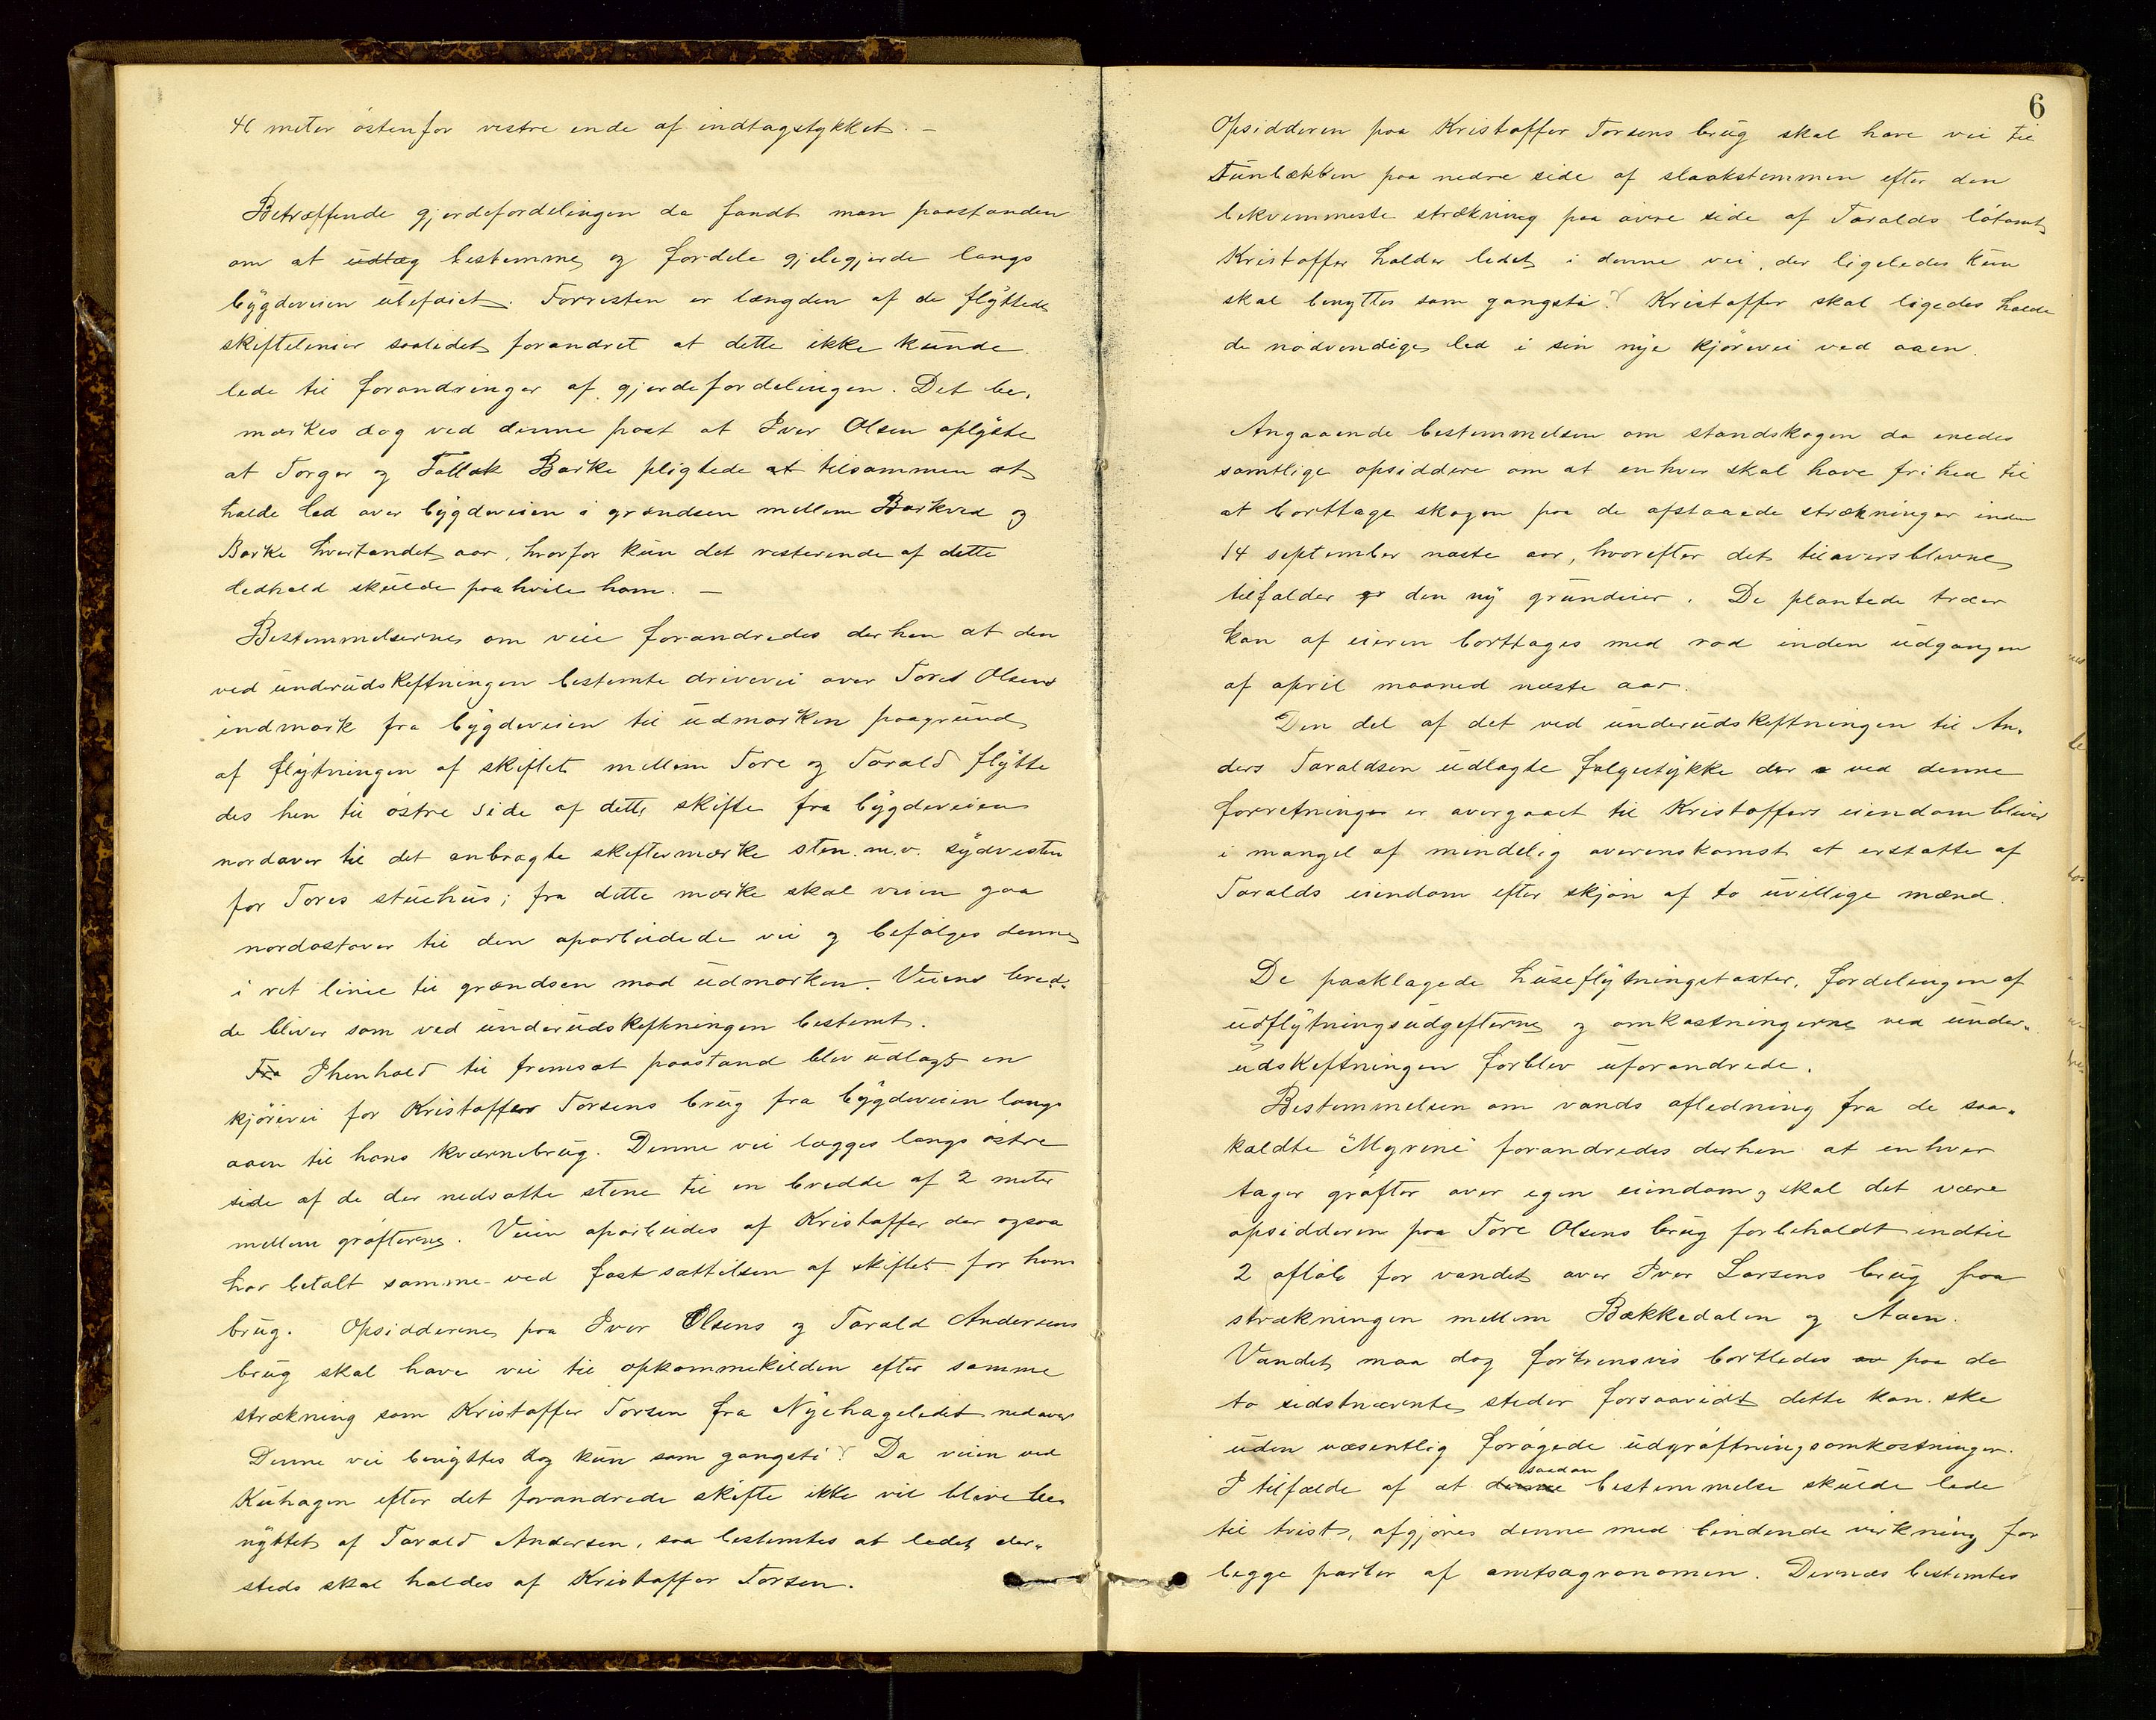 41 meter östenfor vestre ende af indtagstykket. —
Betræffende gjerdefordelingen da fandt man paastanden
om at udlæg bestemme og fordele gjelegjerde langs
bygdeveien ubeföiet. Forresten er længden af de flyttede
skiftelinier saalidet forandret at dette ikke kunde
lede til forandringer af gjerdefordelingen. Det be„
mærkes dog ved denne post at Iver Olsen oplyste
at Torger og Tollak Barke pligtede at tilsammen at
holde led over bygdeveien i grændsen mellem Barkved og
Barke hvertandet aar, hvorfor kun det resterende af dette
ledhold skulde paahvile ham. —
Bestemmelserne om veie forandredes derhen at den
ved underudskiftningen bestemte drivevei over Tores Olsens
indmark fra bygdeveien til udmarken paagrund
af flytningen af skiftet mellem Tore og Tarald flytte
des hen til östre side af dette skifte fra bygdeveien
nordover til det anbragte skiftermærke sten. m.v. sydvesten
for Tores stuehus; fra dette mærke skal veien gaa
nordostover til den oparbeidede vei og befölges denne
i ret linie til grændsen mod udmarken. Veiens bred„
de bliver som ved underudskiftningen bestemt.
Fra Ihenhold til fremsat paastand blev udlagt en
kjörevei for Kristoffer Torsens brug fra bygdeveien langs
aaen til hans kværnebrug. Denne vei lægges langs östre
side af de der nedsatte stene til en bredde af 2 meter
mellem gröfterne. Veien oparbeides af Kristoffer der ogsaa
har betalt samme ved fastsættelsen af skiftet for hans
brug. Opsidderne paa Iver Olsens og Tarald Andersens
brug skal have vei til opkommekilden efter samme
strækning som Kristoffer Torsen fra Nyehageledet nedover
Denne vei benyttes dog kun som gangsti. Da veien ved
Kuhagen efter det forandrede skifte ikke vil blive be„
nyttet af Tarald Andersen, saa bestemtes at ledet der„
steds skal holdes af Kristoffer Torsen.
6
Opsidderen paa Kristoffer Torsens brug skal have vei til
Tunbækken paa nedre side af slaakstemmen efter den
bekvemmeste strækning paa övre side af Taralds lötomt
Kristoffer holder ledet i denne vei, der ligeledes kun
skal benyttes som gangsti. Kristoffer skal ligedes holde
de nödvendige led i sin nye kjörevei ved aaen.
Angaaende bestemmelsen om standskogen da enedes
samtlige opsiddere om at enhver skal have frihed til
at borttage skogen paa de afstaaede strækninger inden
14 september næste aar, hvorefter det tiloversblevne
tilfalder den ny grundeier. De plantede træer
kan af eieren borttages med rod inden udgangen
af april maaned næste aar.
Den del af det ved underudskiftningen til An„
ders Taraldsen udlagte fölgestykke der ved denne
forretning er overgaaet til Kristoffers eiendom bliver
i mangel af mindelig overenskomst at erstatte af
Taralds eiendom efter skjön af to uvillige mænd.
De paaklagede husflytningstaxter, fordelingen af
udflytningsudgifterne og omkostningerne ved under„
udskiftningen forblev uforandrede.
Bestemmelsen om vands afledning fra de saa„
kaldte "Myrene" forandredes derhen at enhver
tager gröfter over egen eiendom, skal det være
opsidderen paa Tore Olsens brug forbeholdt indtil
2 aflöb for vandet over Iver Larsens brug paa
strækningen mellem Bækkedalen og Aaen.
Vandet maa dog fortrensvis bortledes paa de
to sidstnævnte steder forsaavidt dette kan ske
uden væsentlig forögede udgröftningsomkostninger.
saadan
I tilfælde af at denne bestemmelse skulde lede
til trist, afgjöres denne med bindende virkning for
begge parter af amtsagronomen. Dernæs bestemtes